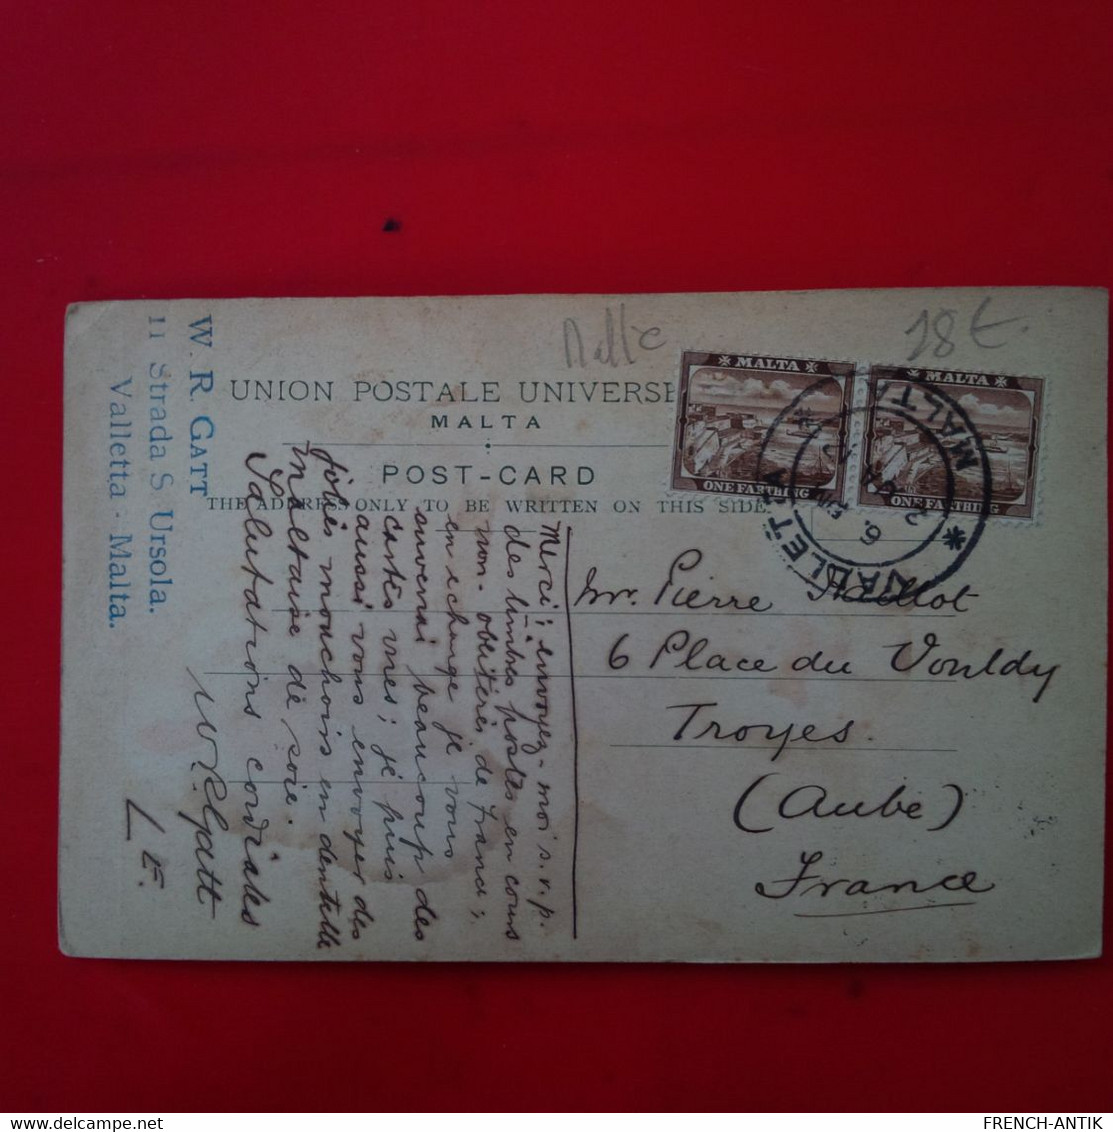 Malte
18 €.
UNION POSTALE UNIVERSE
MALTA
POST-CARD
THE ADDRESS ONLY TO BE WRITTEN ON THIS SIDE.
MALTA
ONE FARTHING
MALTA
ONE FARTHING
VALLETTA
MALTA
W. R. GATT
11 Strada S. Ursola.
Valletta - Malta.
Mr. Pierre Vaillot
6 Place du Vouldy
Troyes.
(Aube)
France
Merci; envoyez-moi s.v.p.
des timbres postes en cours
non-oblitérés de France;
en echange je vous
enverrai beaucoup des
cartes vues; je puis
aussi vous envoyer des
jolies mouchoirs en dentelle
maltaise de soie.
Salutations cordiales
W. R. Gatt
L E.
FRENCH-ANTIK